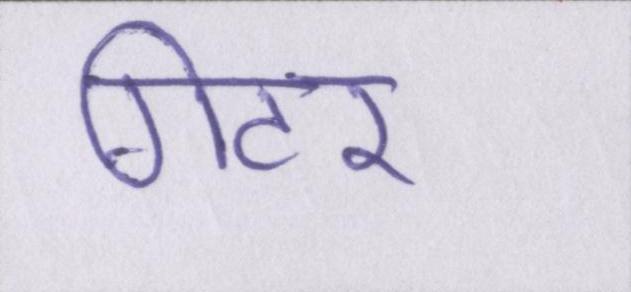 गिटर